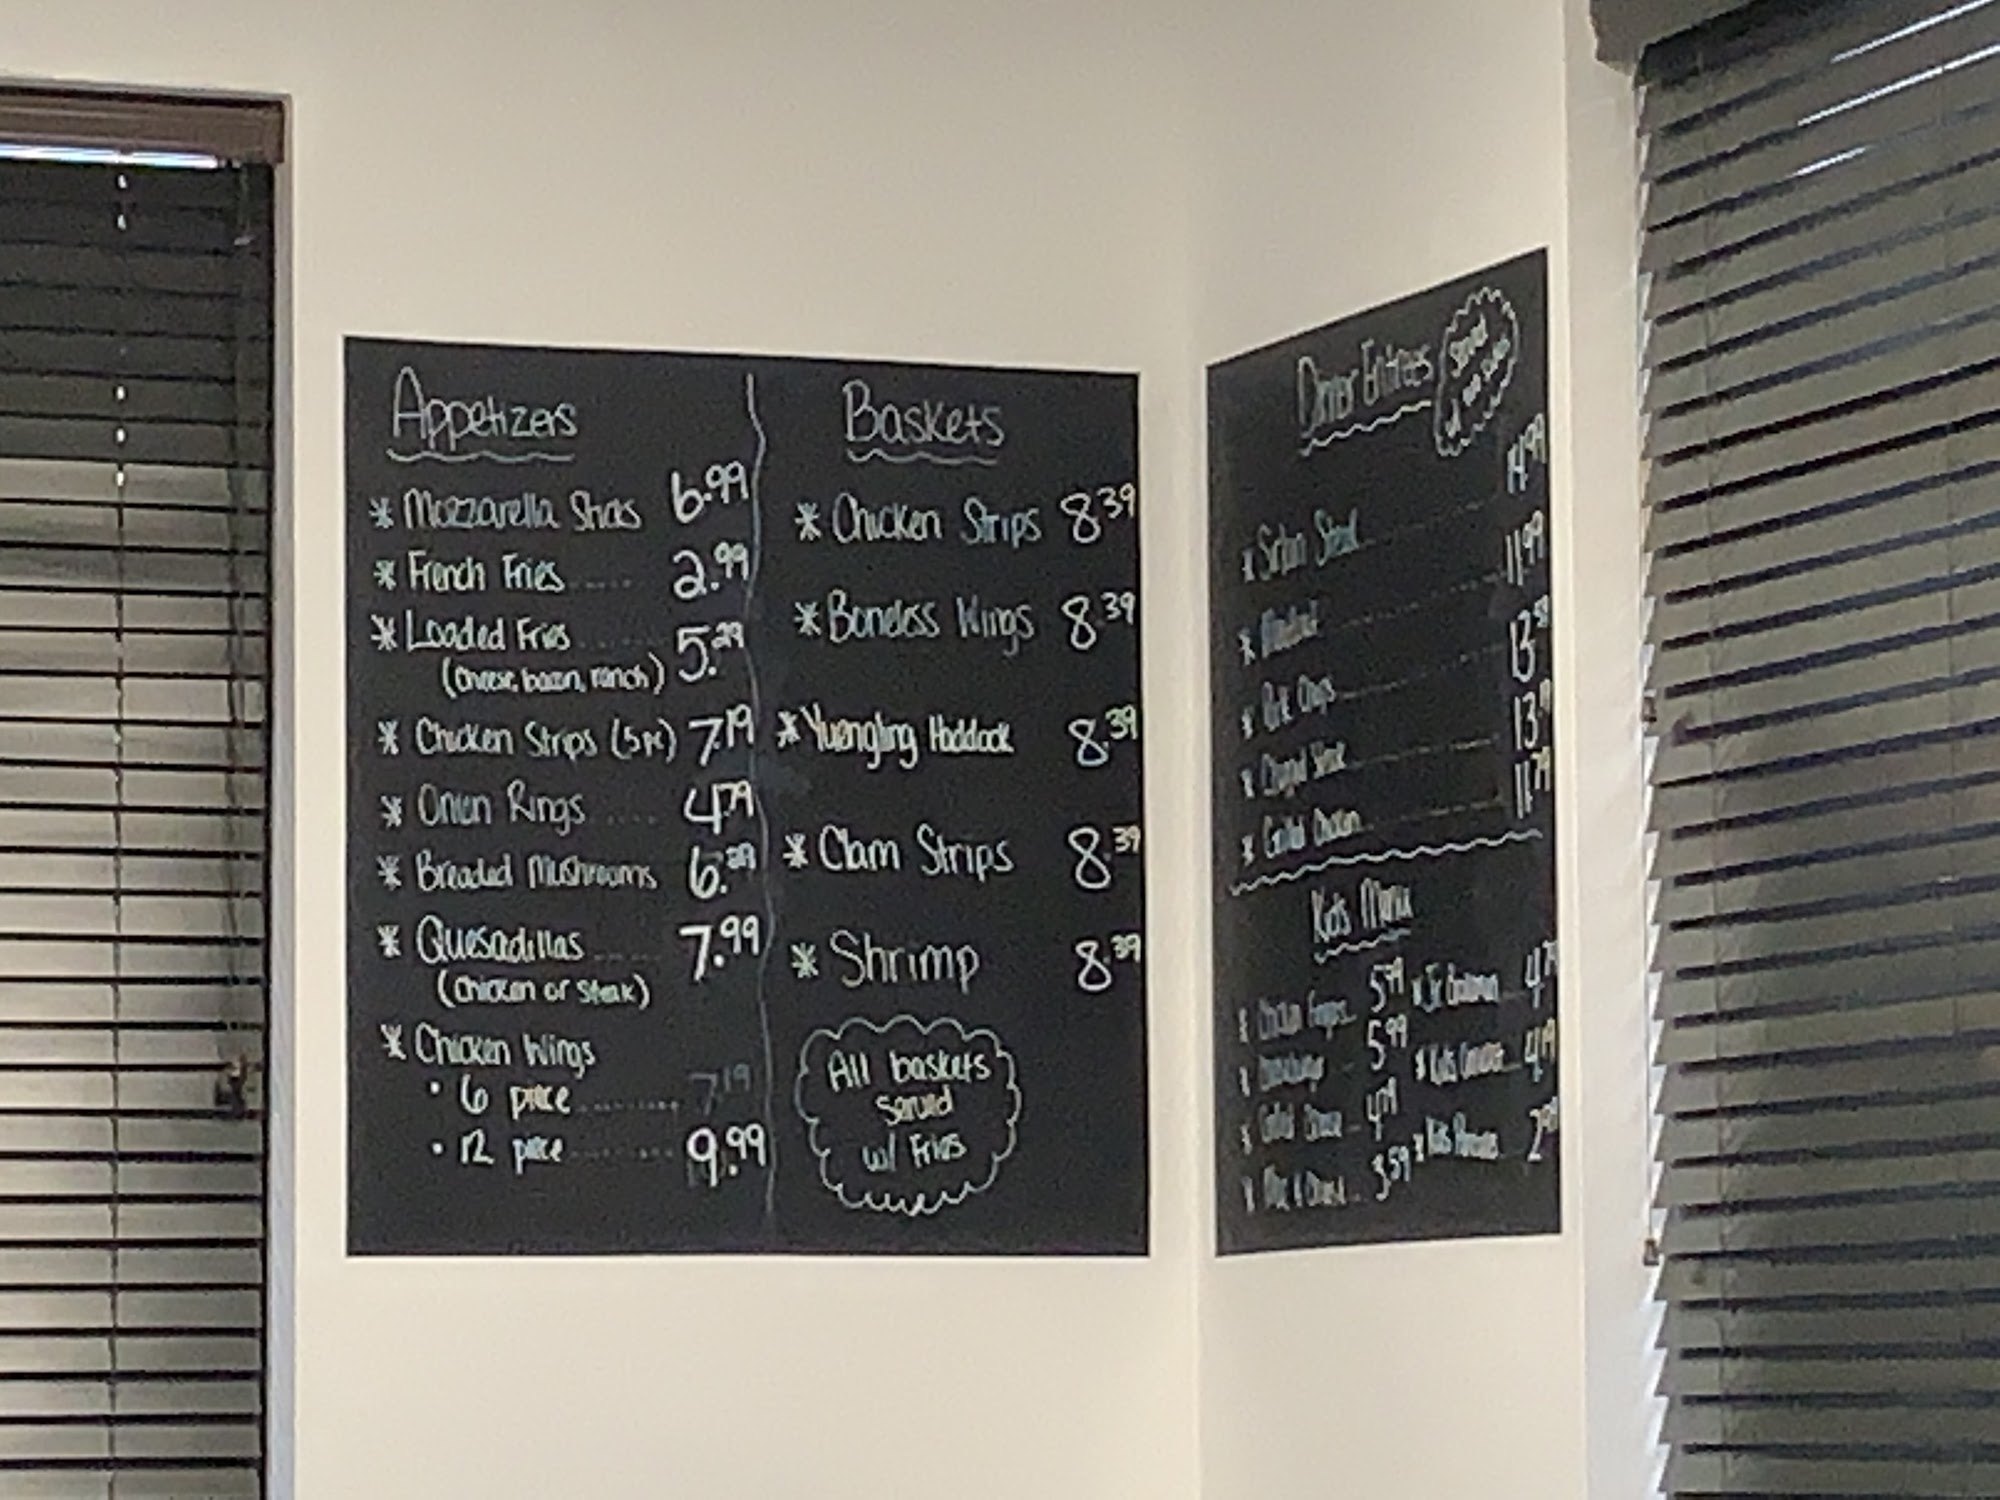 Appetizers
* Mozzarella Sticks 6.99
* French Fries ..... 2.99
* Loaded Fries ..... 5.29
(cheese, bacon, ranch)
* Chicken Strips (5 pc) 7.19
* Onion Rings .... 4.79
* Breaded Mushrooms 6.29
* Quesadillas ..... 7.99
(chicken or steak)
* Chicken Wings
• 6 piece ......... 7.19
• 12 piece ......... 9.99
Baskets
* Chicken Strips 8.39
* Boneless Wings 8.39
* Yuengling Haddock 8.39
* Clam Strips 8.39
* Shrimp 8.39
All baskets
served
w/ Fries
Dinner Entrees
Served
w/ two sides
* Sirloin Steak 14.99
* Haddock 11.99
* Pork Chops 13.59
* Chopped Steak 13
* Grilled Chicken 11.79
Kids Menu
* Chicken Fingers 5.99
5.99
* Grilled Cheese 4.79
* Mac & Cheese 3.59
* Jr. 4.79
* Kids 4.19
* Kids Pancakes 2.99